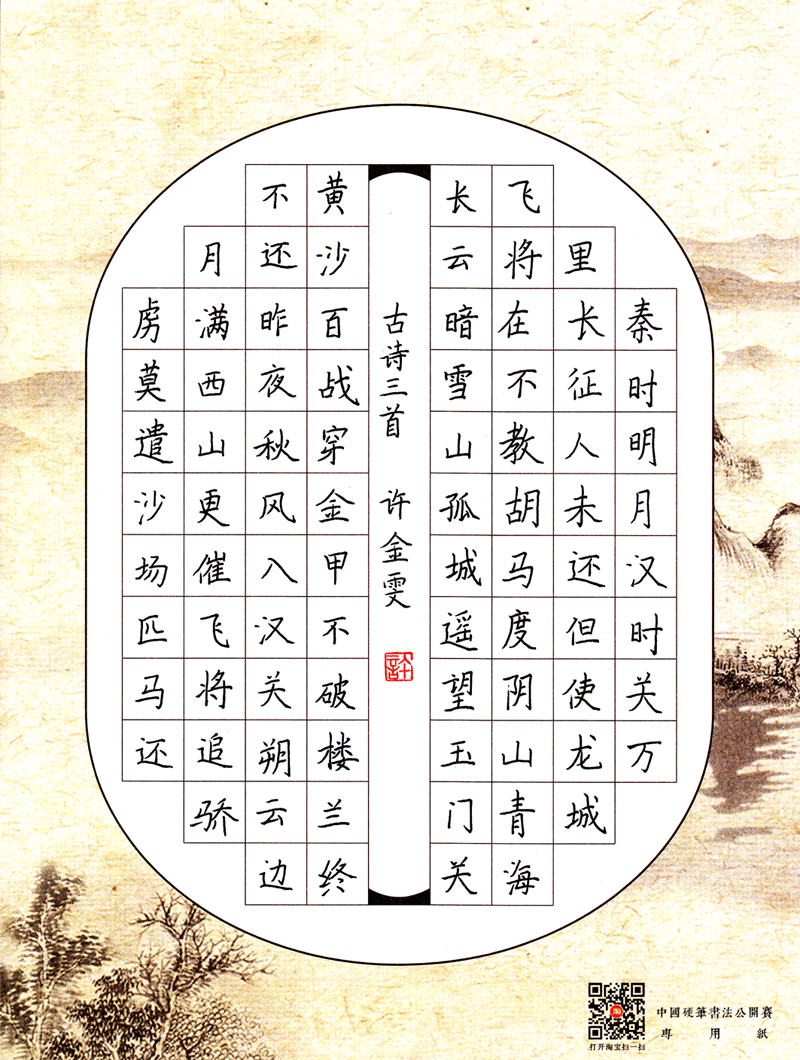 秦时明月汉时关万
里长征人未还但使龙城
飞将在不教胡马度阴山青海
长云暗雪山孤城遥望玉门关
古诗三首 许金雯
許
黄沙百战穿金甲不破楼兰终
不还昨夜秋风入汉关朔云边
月满西山更催飞将追骄
虏莫遣沙场匹马还
中國硬筆書法公開賽
專用紙
打开淘宝扫一扫